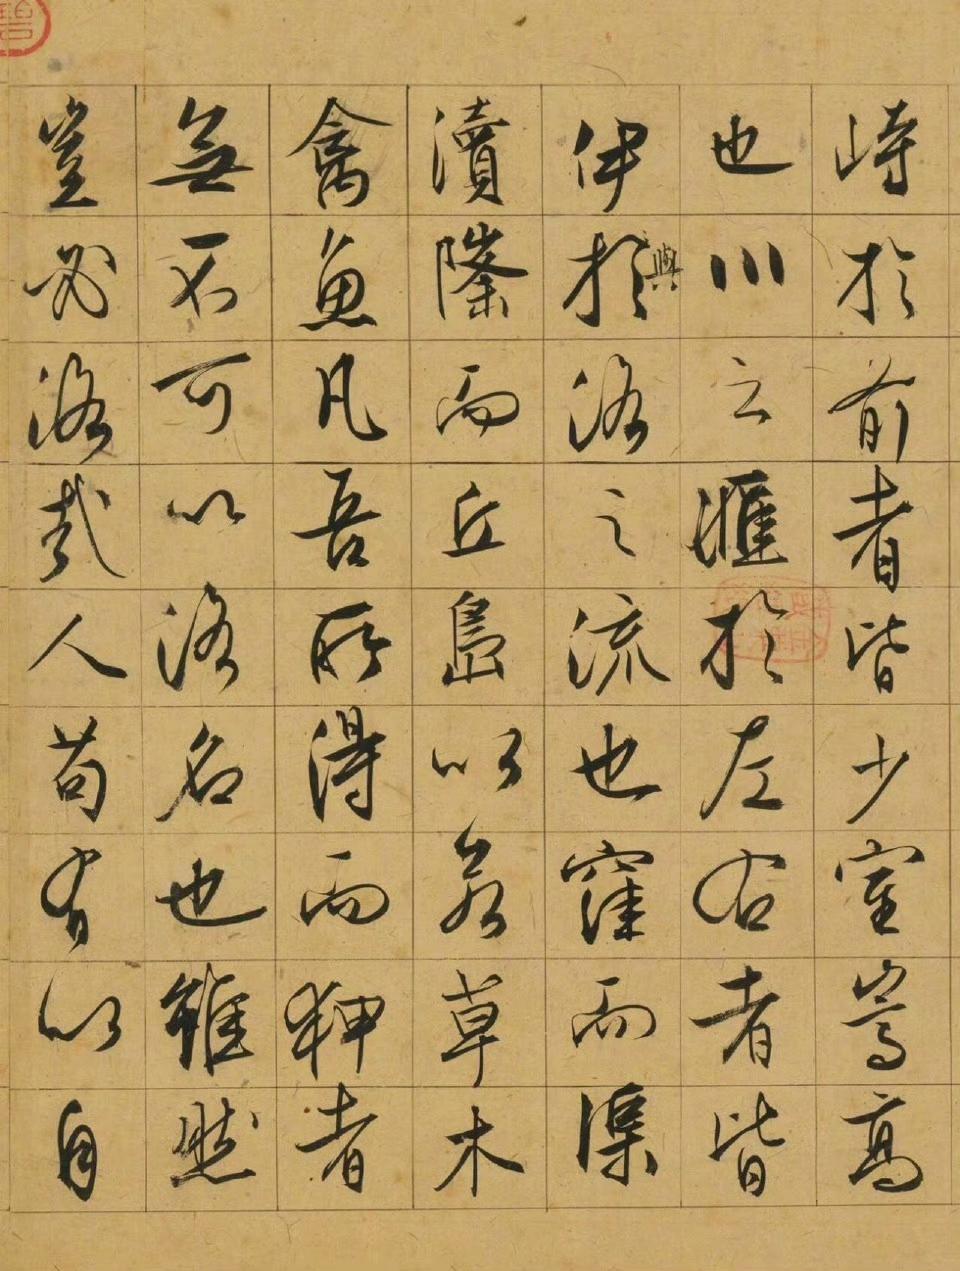 峙於前者皆少室嵩高
也川之滙於左右者皆
伊與於洛之流也窪而渠
瀆隆而丘島以翁草木
禽魚凡吾所得而狎者
無不可以洛名也雖然
豈必洛哉人苟有以自